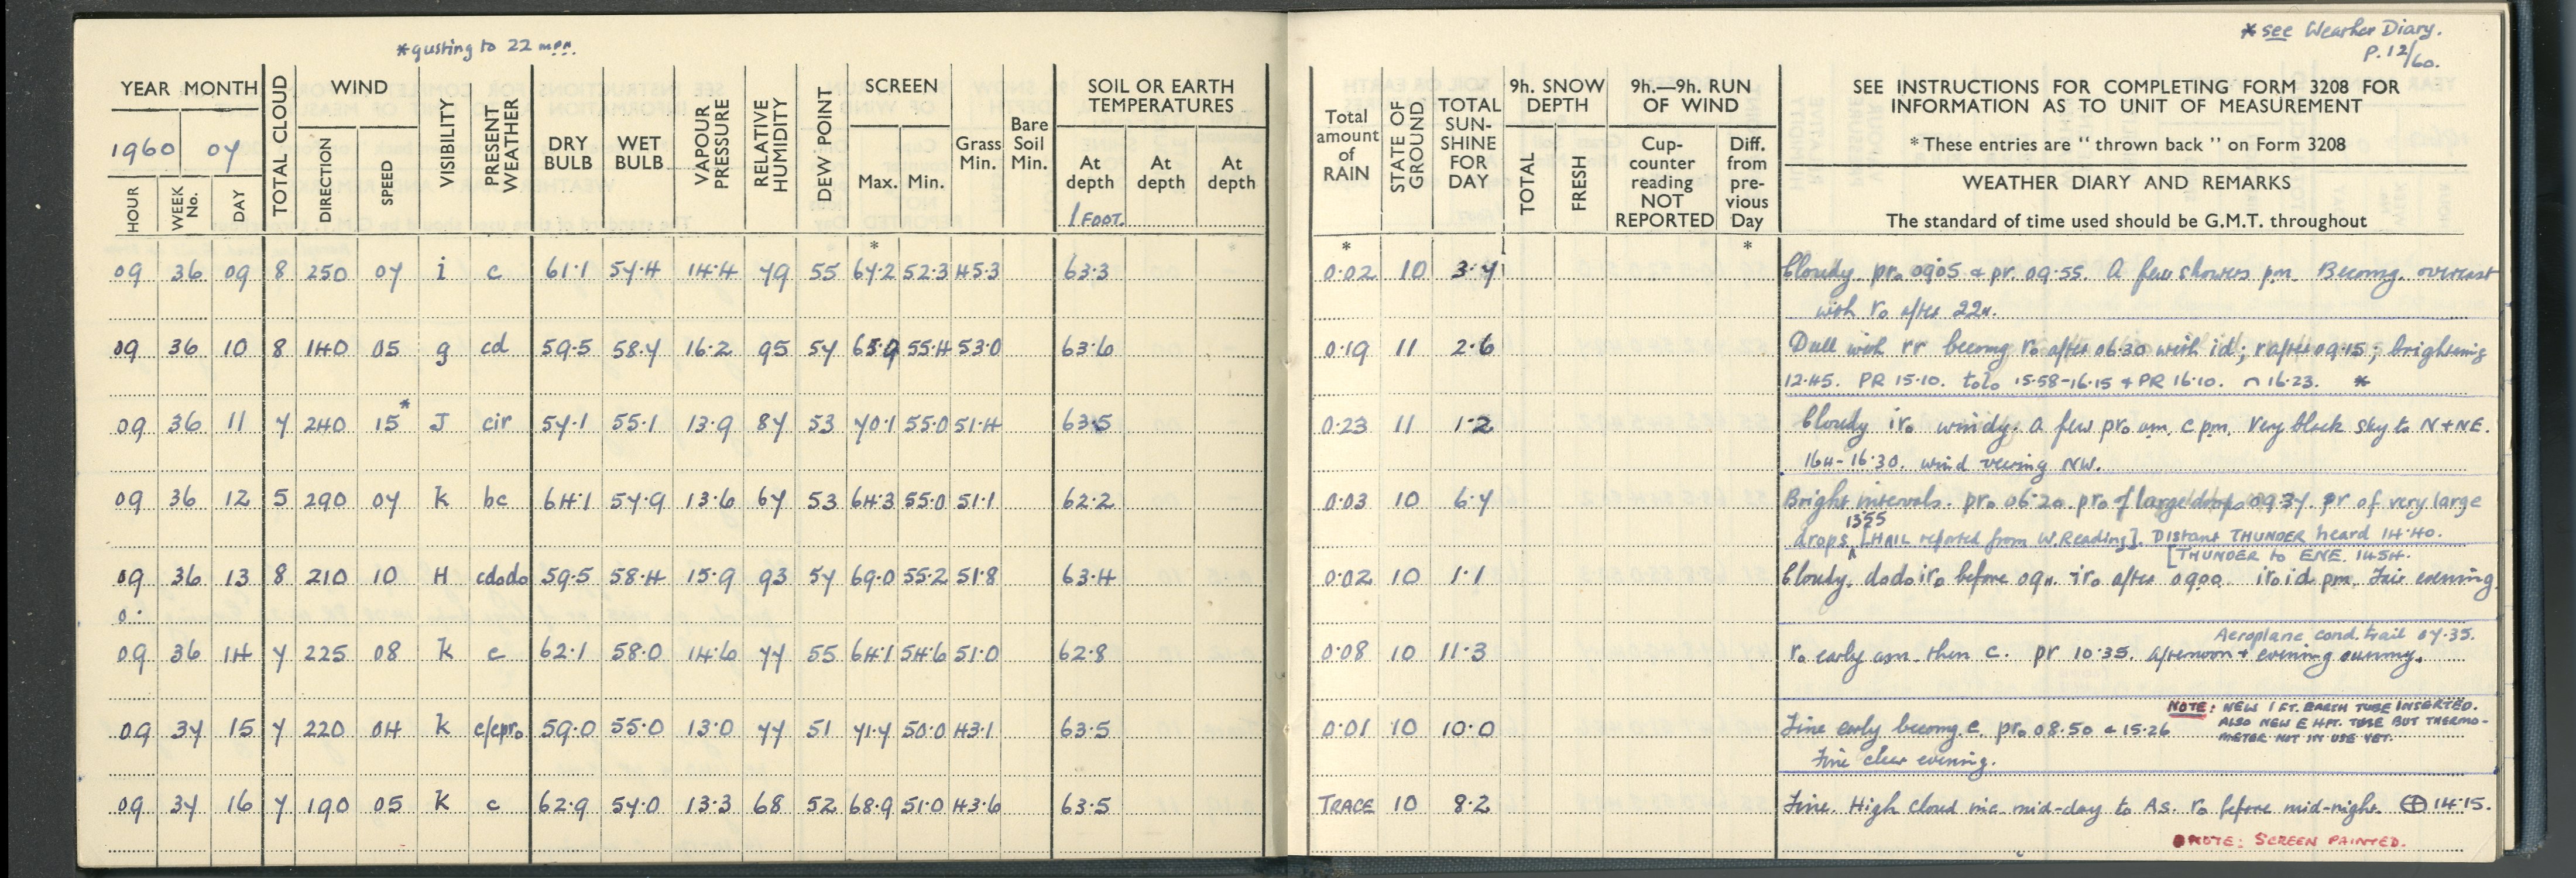 *gusting to 22 mph.
* see Weather Diary.
P.12/60.
YEAR MONTH TOTAL CLOUD WIND VISIBILITY PRESENT WEATHER DRY BULB WET BULB VAPOUR PRESSURE RELATIVE HUMIDITY DEW POINT SCREEN Grass Min. Bare Soil Min. SOIL OR EARTH TEMPERATURES
1960 07
HOUR WEEK No. DAY DIRECTION SPEED Max. Min. At depth At depth At depth
1 FOOT.
Total amount of RAIN STATE OF GROUND TOTAL SUN-SHINE FOR DAY 9h. SNOW DEPTH 9h.—9h. RUN OF WIND
TOTAL FRESH Cup-counter reading NOT REPORTED Diff. from pre-vious Day
SEE INSTRUCTIONS FOR COMPLETING FORM 3208 FOR
INFORMATION AS TO UNIT OF MEASUREMENT
* These entries are "thrown back" on Form 3208
WEATHER DIARY AND REMARKS
The standard of time used should be G.M.T. throughout
* * *
09 36 09 8 250 07 i c 61·1 57·4 14·4 79 55 67·2 52·3 45·3 63·3 0·02 10 3·7 Cloudy. pr₀ 0905 & pr. 09·55. A few showers pm. Becomg. overcast
with r₀ after 22h.
09 36 10 8 140 05 g cd 59·5 58·7 16·2 95 57 65·9 55·4 53·0 63·6 0·19 11 2·6 Dull with rr becomg r₀ after 06·30 with id; r after 09·15; brightening
12·45. PR 15·10. tlo 15·58-16·15 & PR 16·10. ∩ 16·23. *
09 36 11 7 240 15* J cir 57·1 55·1 13·9 87 53 70·1 55·0 51·4 63·5 0·23 11 1·2 Cloudy ir₀ windy. A few pr₀ am, c pm. Very black sky to N + NE.
16h-16·30. wind veering NW.
09 36 12 5 290 07 k bc 64·1 57·9 13·6 67 53 64·3 55·0 51·1 62·2 0·03 10 6·7 Bright intervals. pr₀ 06·20 pr₀ of large drops 09·37. pr of very large
drops 1355 [HAIL reported from W. Reading]. Distant THUNDER heard 14·40.
[THUNDER to ENE. 1454.
09 36 13 8 210 10 H cdodo 59·5 58·4 15·9 93 57 69·0 55·2 51·8 63·4 0·02 10 1·1 Cloudy. dodo ir₀ before 09h. ir₀ after 0900. ir₀ id pm. Fair evening.
09 36 14 7 225 08 k c 62·1 58·0 14·6 77 55 64·1 54·6 51·0 62·8 0·08 10 11·3 Aeroplane cond. trail 07·35.
r₀ early am. then c. pr 10·35. afternoon + evening sunny.
09 37 15 7 220 04 k c/cpr₀ 59·0 55·0 13·0 77 51 71·7 50·0 43·1 63·5 0·01 10 10·0 Fine early becomg. c. pr₀ 08·50 & 15·26
NOTE: NEW 1 FT. EARTH TUBE INSERTED.
ALSO NEW E 4FT. TUBE BUT THERMO-
METER NOT IN USE YET.
Fine clear evening.
09 37 16 7 190 05 k c 62·9 57·0 13·3 68 52 68·9 51·0 43·6 63·5 TRACE 10 8·2 Fine. High cloud inc. mid-day to As. r₀ before mid-night. ⊕ 14·15.
NOTE: SCREEN PAINTED.